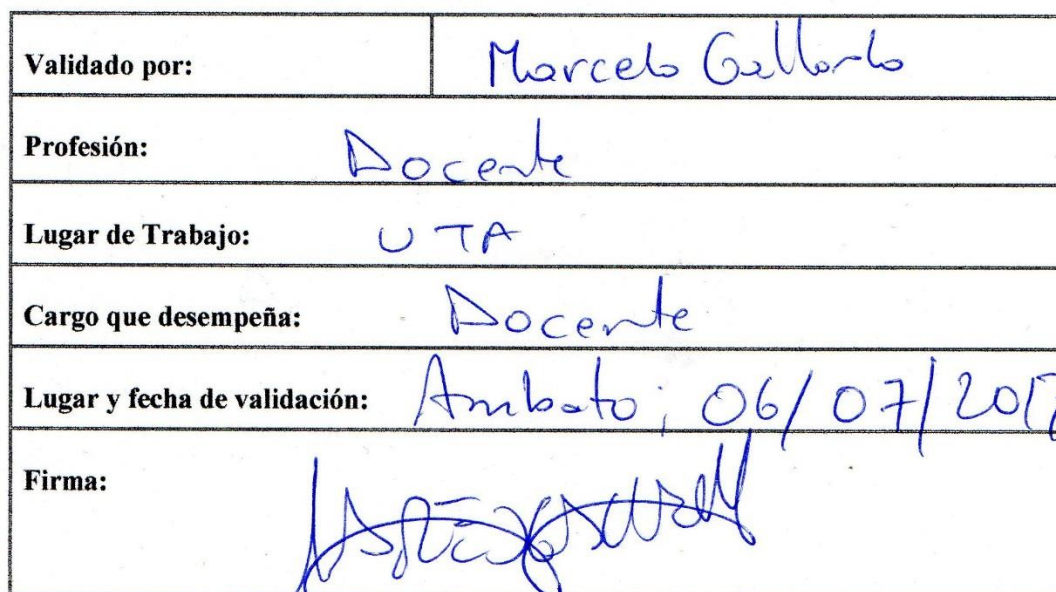 Validado por: Marcelo Gallardo
Profesión: Docente
Lugar de Trabajo: UTA
Cargo que desempeña: Docente
Lugar y fecha de validación: Ambato; 06/07/
Firma: